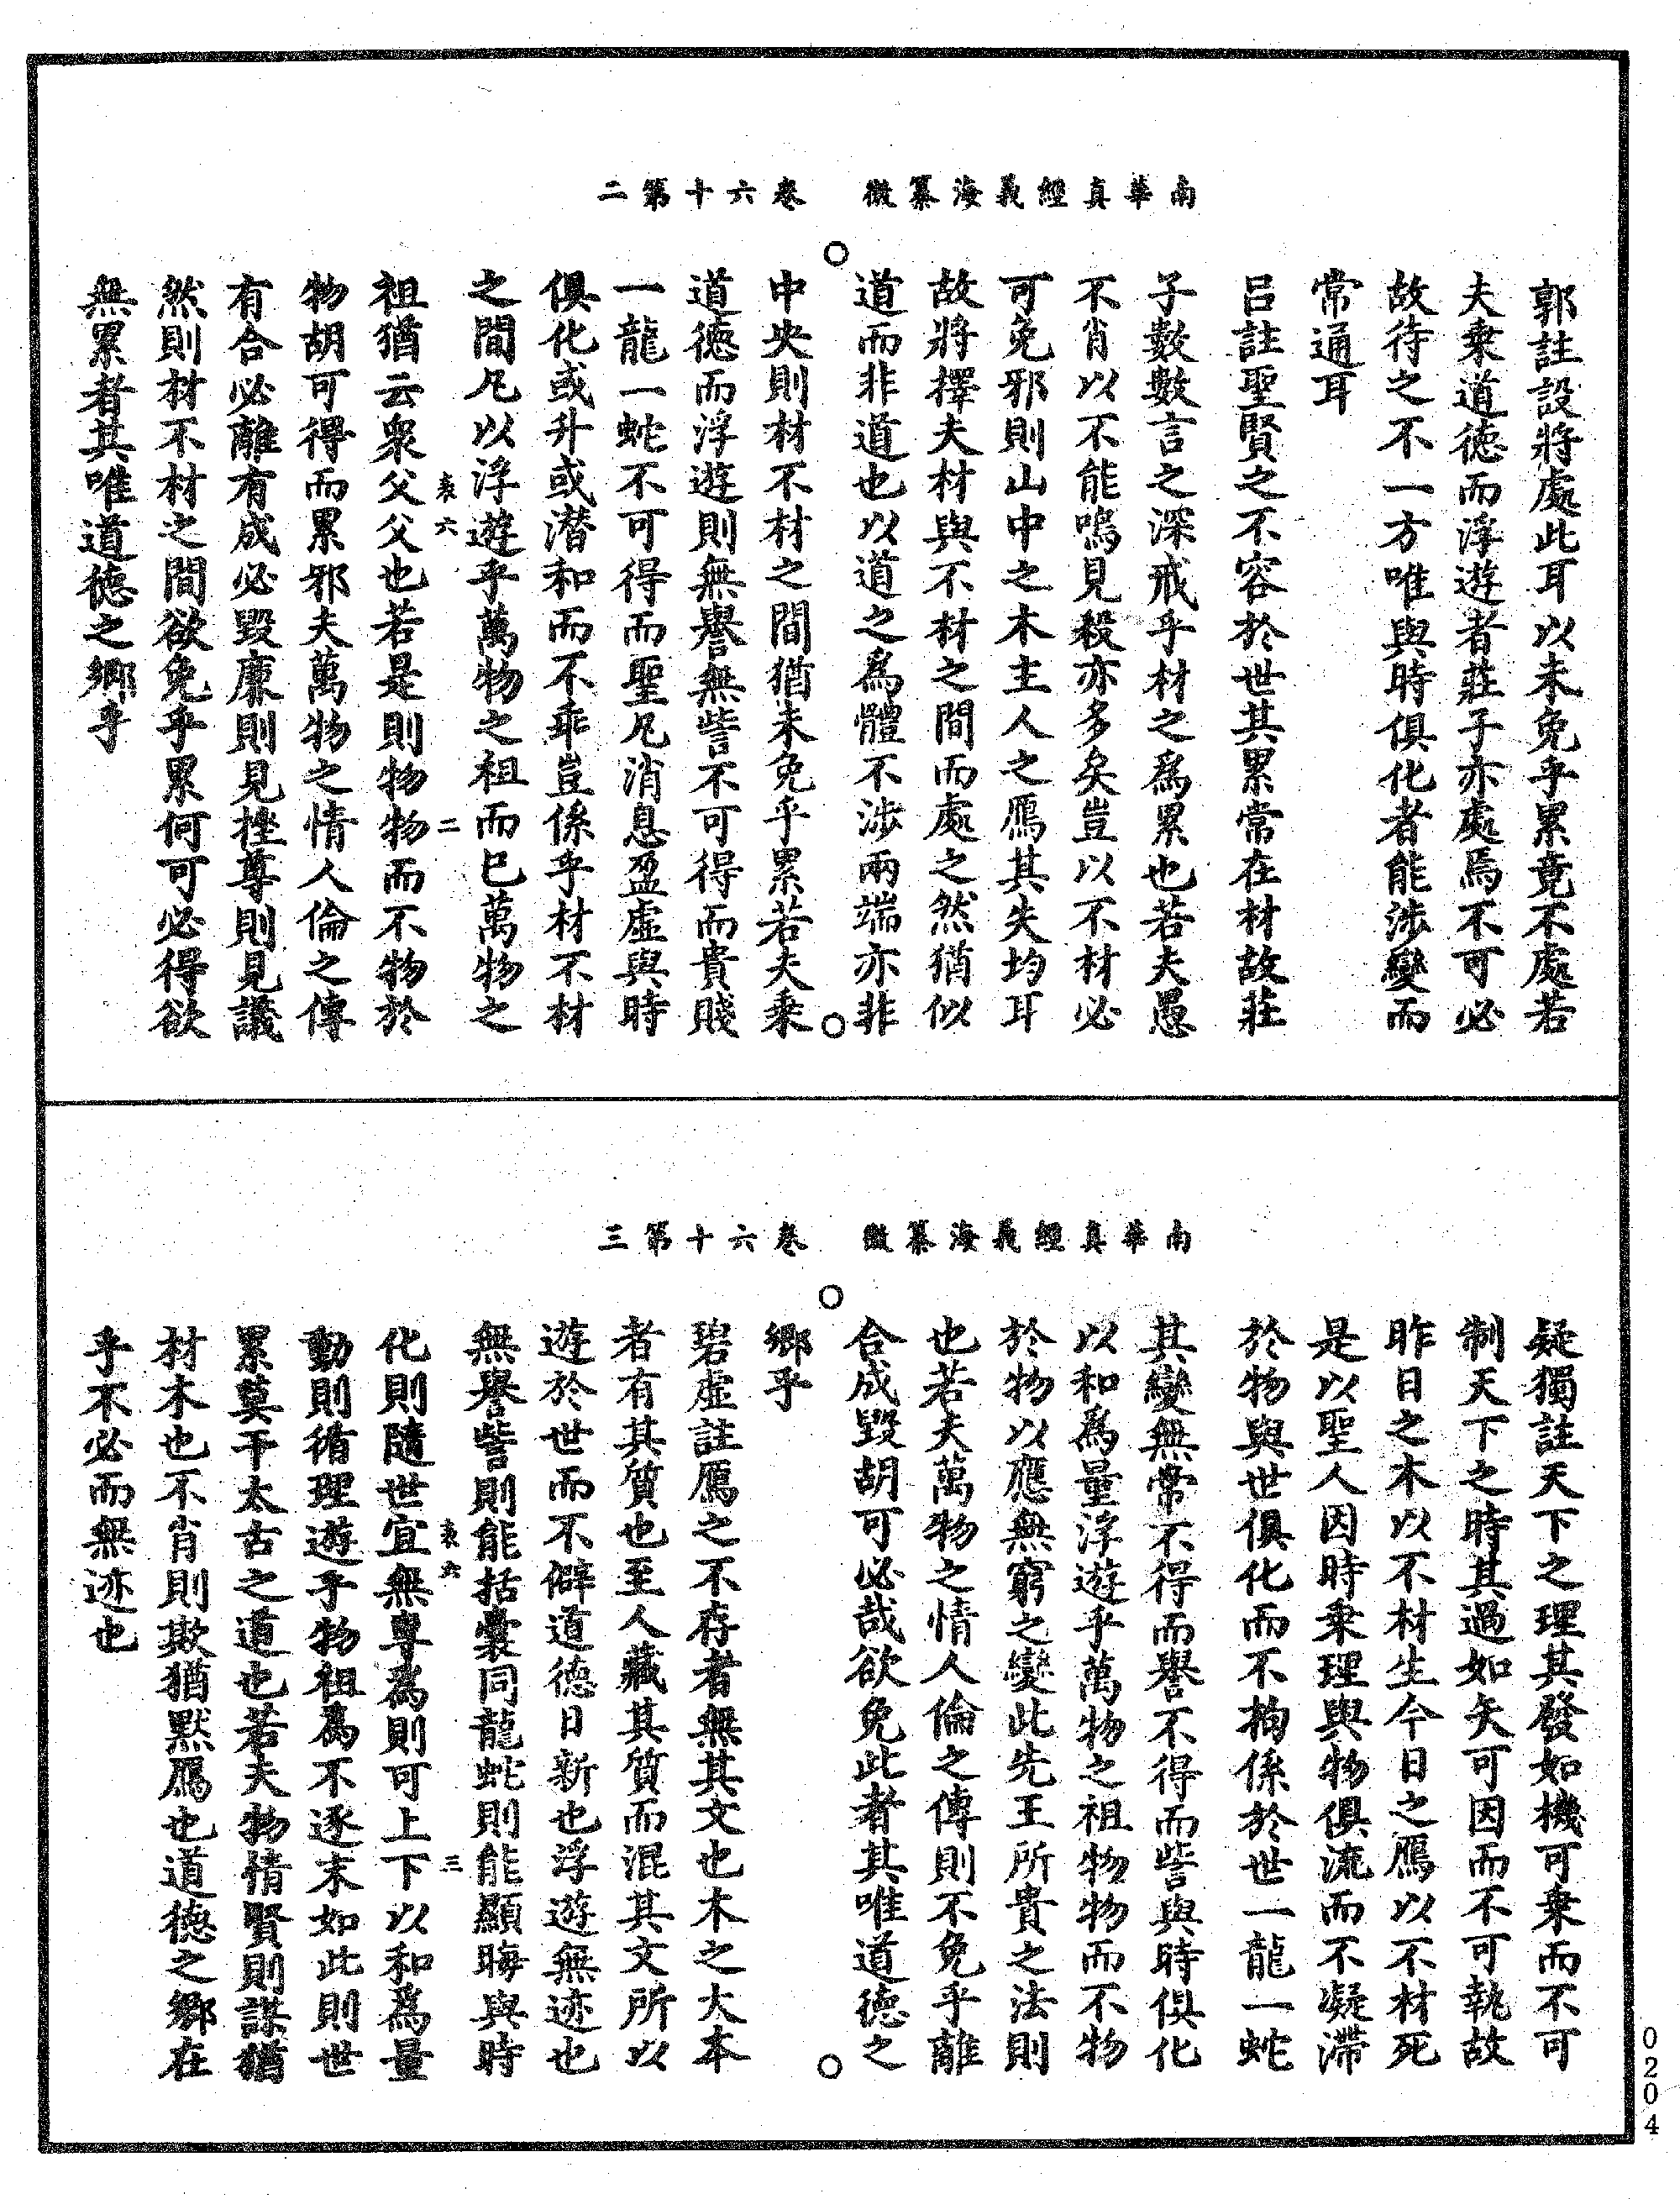 南華真經義海纂微　卷六十第二
郭註設將處此耳以未免乎累竟不處若
夫乘道德而浮遊者莊子亦處焉不可必
故待之不一方唯與時俱化者能涉變而
常通耳
呂註聖賢之不容於世其累常在材故莊
子數數言之深戒乎材之為累也若夫愚
不肖以不能鳴見殺亦多矣豈以不材必
可免邪則山中之木主人之鴈其失均耳
故將擇夫材與不材之間而處之然猶似
道而非道也以道之為體不涉兩端亦非
中央則材不材之間猶未免乎累若夫乘
道德而浮遊則無譽無訾不可得而貴賤
一龍一蛇不可得而聖凡消息盈虛與時
俱化或升或潛和而不乖豈係乎材不材
之間凡以浮遊乎萬物之祖而已萬物之
表六　二
祖猶云衆父父也若是則物物而不物於
物胡可得而累邪夫萬物之情人倫之傳
有合必離有成必毀廉則見挫尊則見議
然則材不材之間欲免乎累何可必得欲
無累者其唯道德之鄉乎
南華真經義海纂微　卷六十第三
疑獨註天下之理其發如機可乘而不可
制天下之時其過如矢可因而不可執故
昨日之木以不材生今日之鴈以不材死
是以聖人因時乘理與物俱流而不凝滯
於物與世俱化而不拘係於世一龍一蛇
其變無常不得而譽不得而訾與時俱化
以和為量浮遊乎萬物之祖物物而不物
於物以應無窮之變此先王所貴之法則
也若夫萬物之情人倫之傳則不免乎離
合成毀胡可必哉欲免此者其唯道德之
鄉乎
碧虛註鴈之不存者無其文也木之大本
者有其質也至人藏其質而混其文所以
遊於世而不僻道德日新也浮遊無迹也
無譽訾則能括囊同龍蛇則能顯晦與時
表六　三
化則隨世宜無專為則可上下以和為量
動則循理遊乎物祖為不逐末如此則世
累莫干太古之道也若夫物情賢則謀猶
材木也不肖則欺猶默鴈也道德之鄉在
乎不必而無迹也
0204